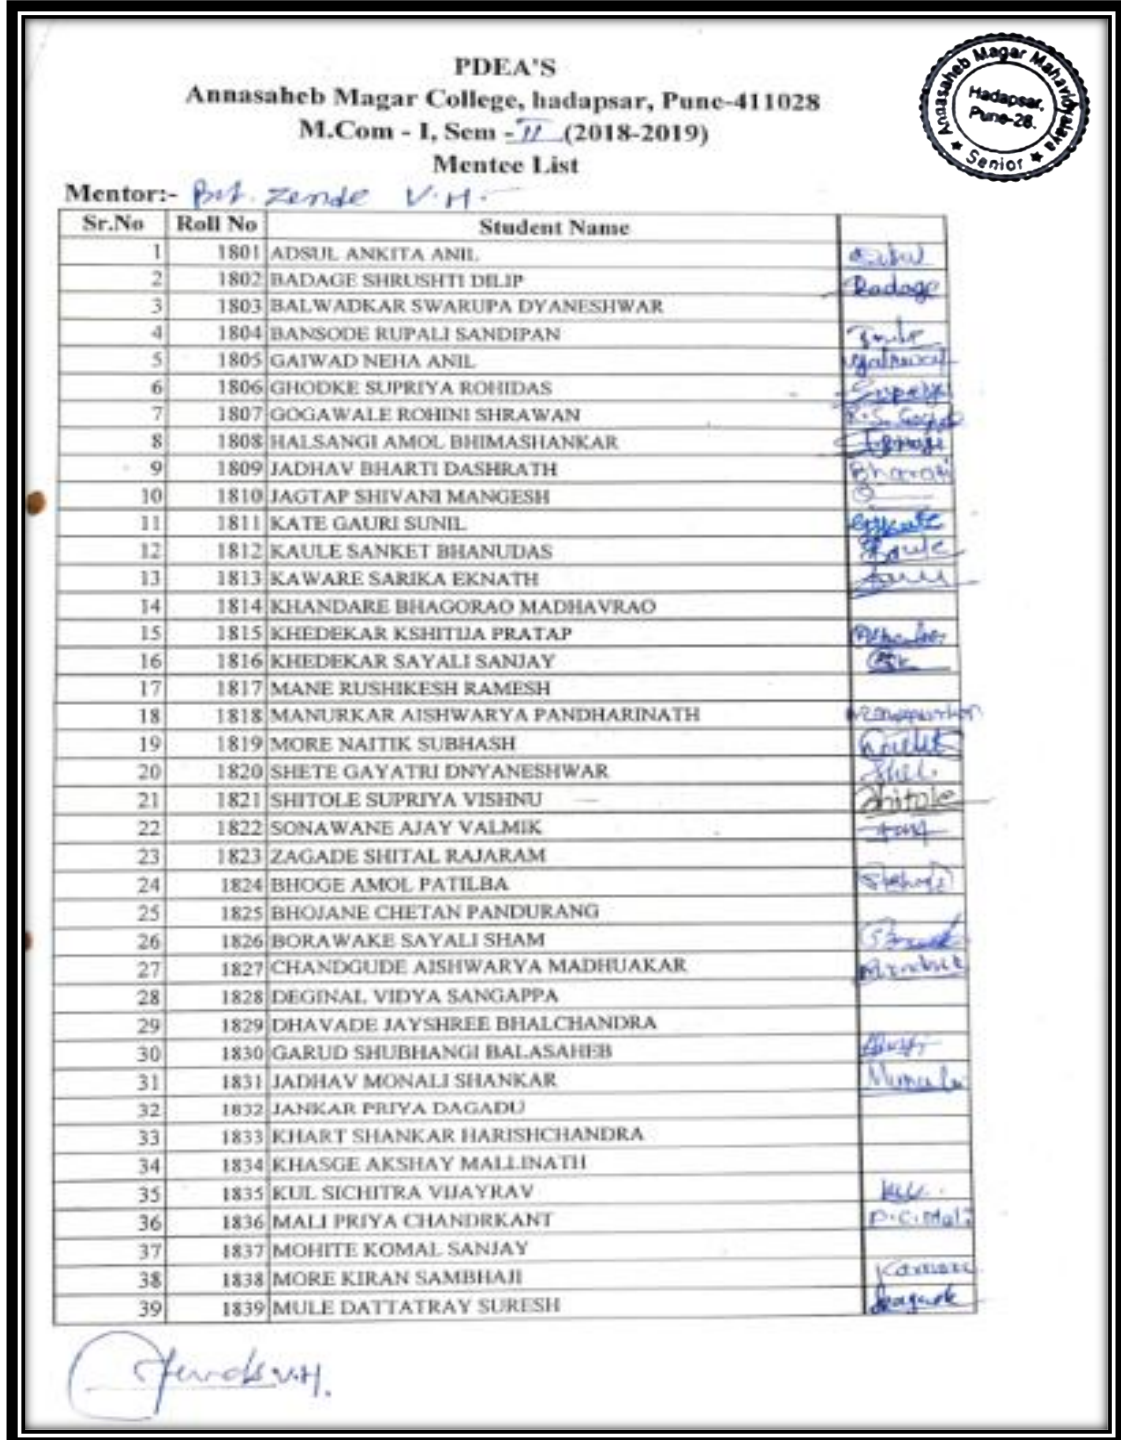 PDEA'S
Annasaheb Magar College, hadapsar, Pune-411028
M.Com - I, Sem - II (2018-2019)
Mentee List
Annasaheb Magar Mahavidyalaya
Hadapsar,
Pune-28.
★ Senior ★
Mentor:- Prof. Zende V.H.
Sr.No Roll No Student Name
1 1801 ADSUL ANKITA ANIL
2 1802 BADAGE SHRUSHTI DILIP Badage
3 1803 BALWADKAR SWARUPA DYANESHWAR
4 1804 BANSODE RUPALI SANDIPAN
5 1805 GAIWAD NEHA ANIL
6 1806 GHODKE SUPRIYA ROHIDAS
7 1807 GOGAWALE ROHINI SHRAWAN
8 1808 HALSANGI AMOL BHIMASHANKAR
9 1809 JADHAV BHARTI DASHRATH Bharati
10 1810 JAGTAP SHIVANI MANGESH
11 1811 KATE GAURI SUNIL
12 1812 KAULE SANKET BHANUDAS Kaule
13 1813 KAWARE SARIKA EKNATH
14 1814 KHANDARE BHAGORAO MADHAVRAO
15 1815 KHEDEKAR KSHITIJA PRATAP
16 1816 KHEDEKAR SAYALI SANJAY
17 1817 MANE RUSHIKESH RAMESH
18 1818 MANURKAR AISHWARYA PANDHARINATH
19 1819 MORE NAITIK SUBHASH
20 1820 SHETE GAYATRI DNYANESHWAR
21 1821 SHITOLE SUPRIYA VISHNU Shitole
22 1822 SONAWANE AJAY VALMIK
23 1823 ZAGADE SHITAL RAJARAM
24 1824 BHOGE AMOL PATILBA
25 1825 BHOJANE CHETAN PANDURANG
26 1826 BORAWAKE SAYALI SHAM
27 1827 CHANDGUDE AISHWARYA MADHUAKAR
28 1828 DEGINAL VIDYA SANGAPPA
29 1829 DHAVADE JAYSHREE BHALCHANDRA
30 1830 GARUD SHUBHANGI BALASAHEB
31 1831 JADHAV MONALI SHANKAR
32 1832 JANKAR PRIYA DAGADU
33 1833 KHART SHANKAR HARISHCHANDRA
34 1834 KHASGE AKSHAY MALLINATH
35 1835 KUL SICHITRA VIJAYRAV
36 1836 MALI PRIYA CHANDRKANT P.C.Mali
37 1837 MOHITE KOMAL SANJAY
38 1838 MORE KIRAN SAMBHAJI
39 1839 MULE DATTATRAY SURESH
V.H.